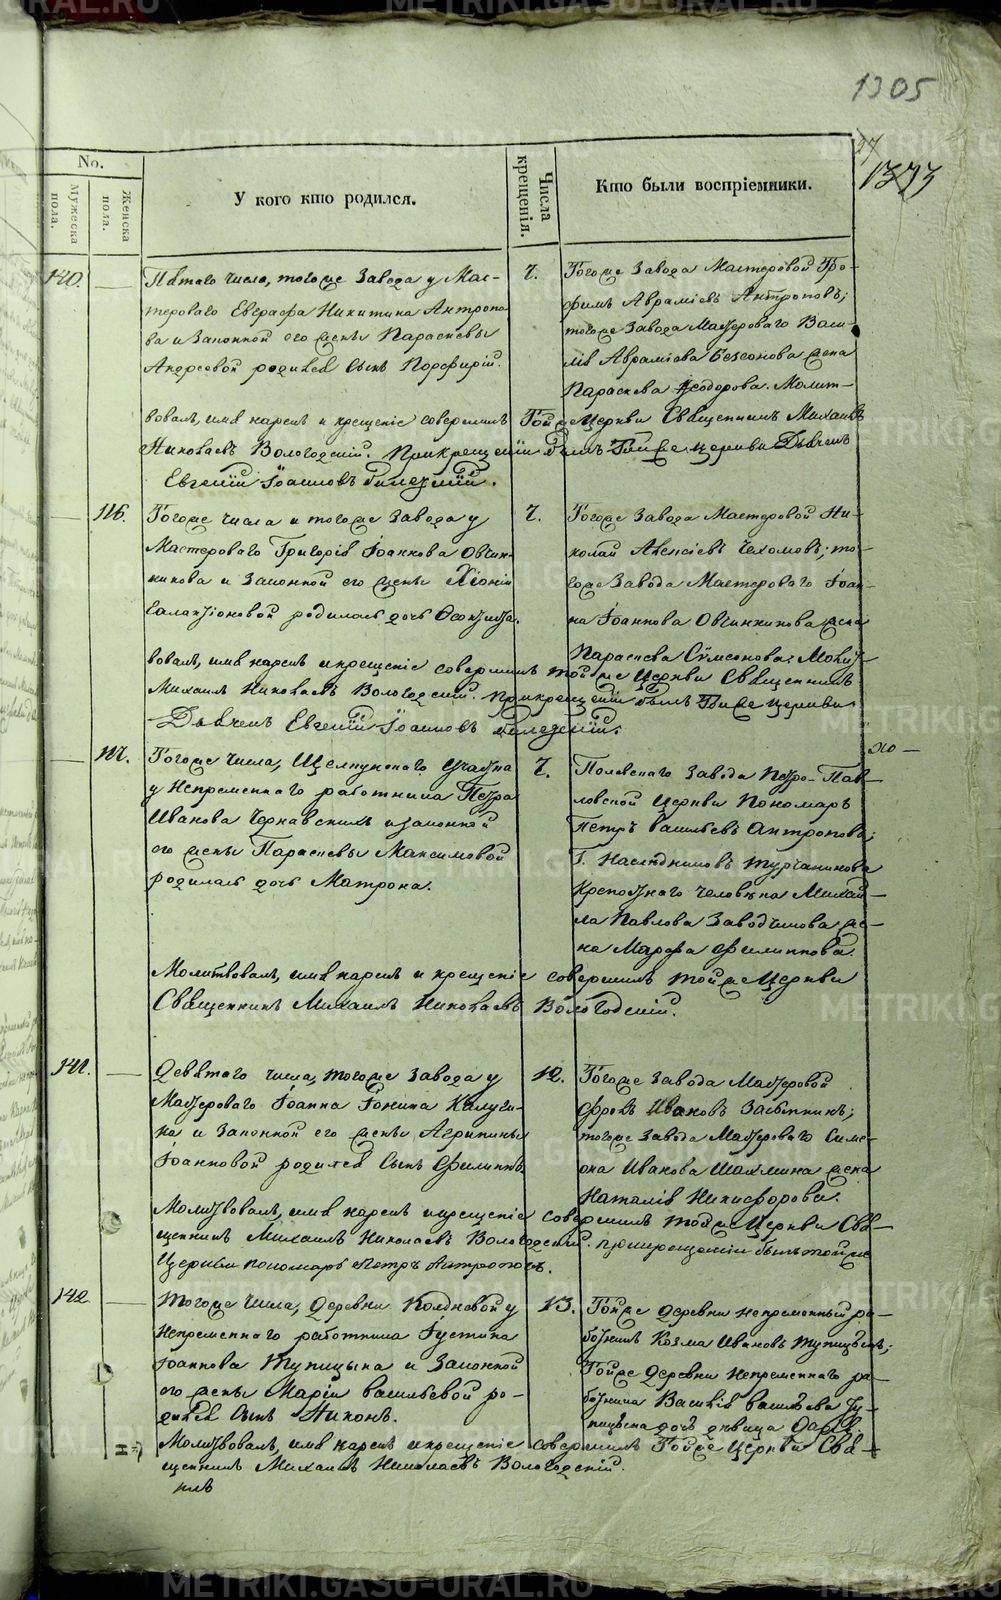 1305
1373
No.
Мужеска пола.
Женска пола.
У кого кто родился.
Числа крещенія.
Кто были воспріемники.
140.
Пятаго числа, тогоже Завода у Мас-
тероваго Евграфа Никитина Антропо-
ва и Законной его жены Параскевы
Андреевой родился Сынъ Порфирій.
7.
Тогоже Завода Мастеровой Тро-
фимъ Аврамiевъ Антроповъ;
тогоже Завода Мастероваго Васи-
лія Аврамiева Безсонова жена
Параскева Ѳеодорова. Молит-
вовалъ, имя нарекъ и крещеніе совершилъ Тойже Церкви Священникъ Михаилъ
Николаевъ Вологодскій. При крещеніи былъ Тойже церкви Дьячекъ
Евгеній Іоанновъ
116.
Тогоже числа и тогоже Завода у
Мастероваго Григорія Іоаннова Овчин-
никова и Законной его жены Хіоніи
Галактіоновой родилась дочь Ѳеоктиста.
7.
Тогоже Завода Мастеровой Ни-
колай Алексіевъ Чехомовъ; то-
гоже Завода Мастероваго Іоан-
на Іоаннова Овчинникова жена
Параскева Сѵмеонова. Молит-
вовалъ, имя нарекъ и крещеніе совершилъ тойже Церкви Священникъ
Михаилъ Николаевъ Вологодскій. При крещеніи былъ Тойже церкви
Дьячекъ Евгеній Іоанновъ
117.
Тогоже числа, Щелкунскаго Участка
у Непременнаго работника Петра
Иванова Чернавскихъ и законной
его жены Параскевы Максимовой
родилась дочь Матрона.
7.
Полевскаго Завода Петро-Пав-
ловской Церкви Пономарь
Петръ Васильевъ Антроповъ;
Г. Наслѣдниковъ Турчанинова
Крепостнаго человѣка Михай-
ла Павлова Заводчикова же-
на Марфа Филиппова.
Молитвовалъ, имя нарекъ и крещеніе совершилъ тойже Церкви
Священникъ Михаилъ Николаевъ Вологодскій.
141.
Девятаго числа, тогоже Завода у
Мастероваго Іоанна Іонина Калуги-
на и Законной его жены Агрипины
Іоанновой родился Сынъ Филиппъ.
12.
Тогоже Завода Мастеровой
Фролъ Ивановъ Засыпкинъ;
тогоже Завода Мастероваго Симе-
она Иванова Шахмина жена
Наталія Никифорова.
Молитвовалъ, имя нарекъ и крещеніе совершилъ тойже Церкви Свя-
щенникъ Михаилъ Николаевъ Вологодскій. При крещеніи былъ тойже
Церкви пономарь Петръ Антроповъ.
142.
Тогоже числа, Деревни Колдневой у
Непременнаго работника Густина
Іоаннова Тупицына и Законной
его жены Маріи Васильевой ро-
дился Сынъ Никонъ.
13.
Тойже Деревни Непременный ра-
ботникъ Козма Ивановъ Тупицынъ;
Тойже Деревни Непременнаго ра-
ботника Василія Васильева Ту-
пицына дочь дѣвица Дарья
Молитвовалъ, имя нарекъ и крещеніе совершилъ Тойже Церкви Свя-
щенникъ Михаилъ Николаевъ Вологодскій.
METRIKI.GASO-URAL.RU